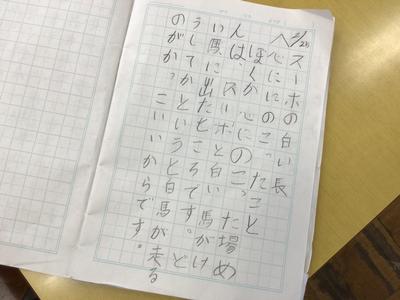 スーホの白い馬
心にのこったこと
ぼくが心にのこった場め
んは、スーホと白い馬がけ
い馬に出たところです。ど
うしてかというと白馬が走る
のがかっこいいからです。